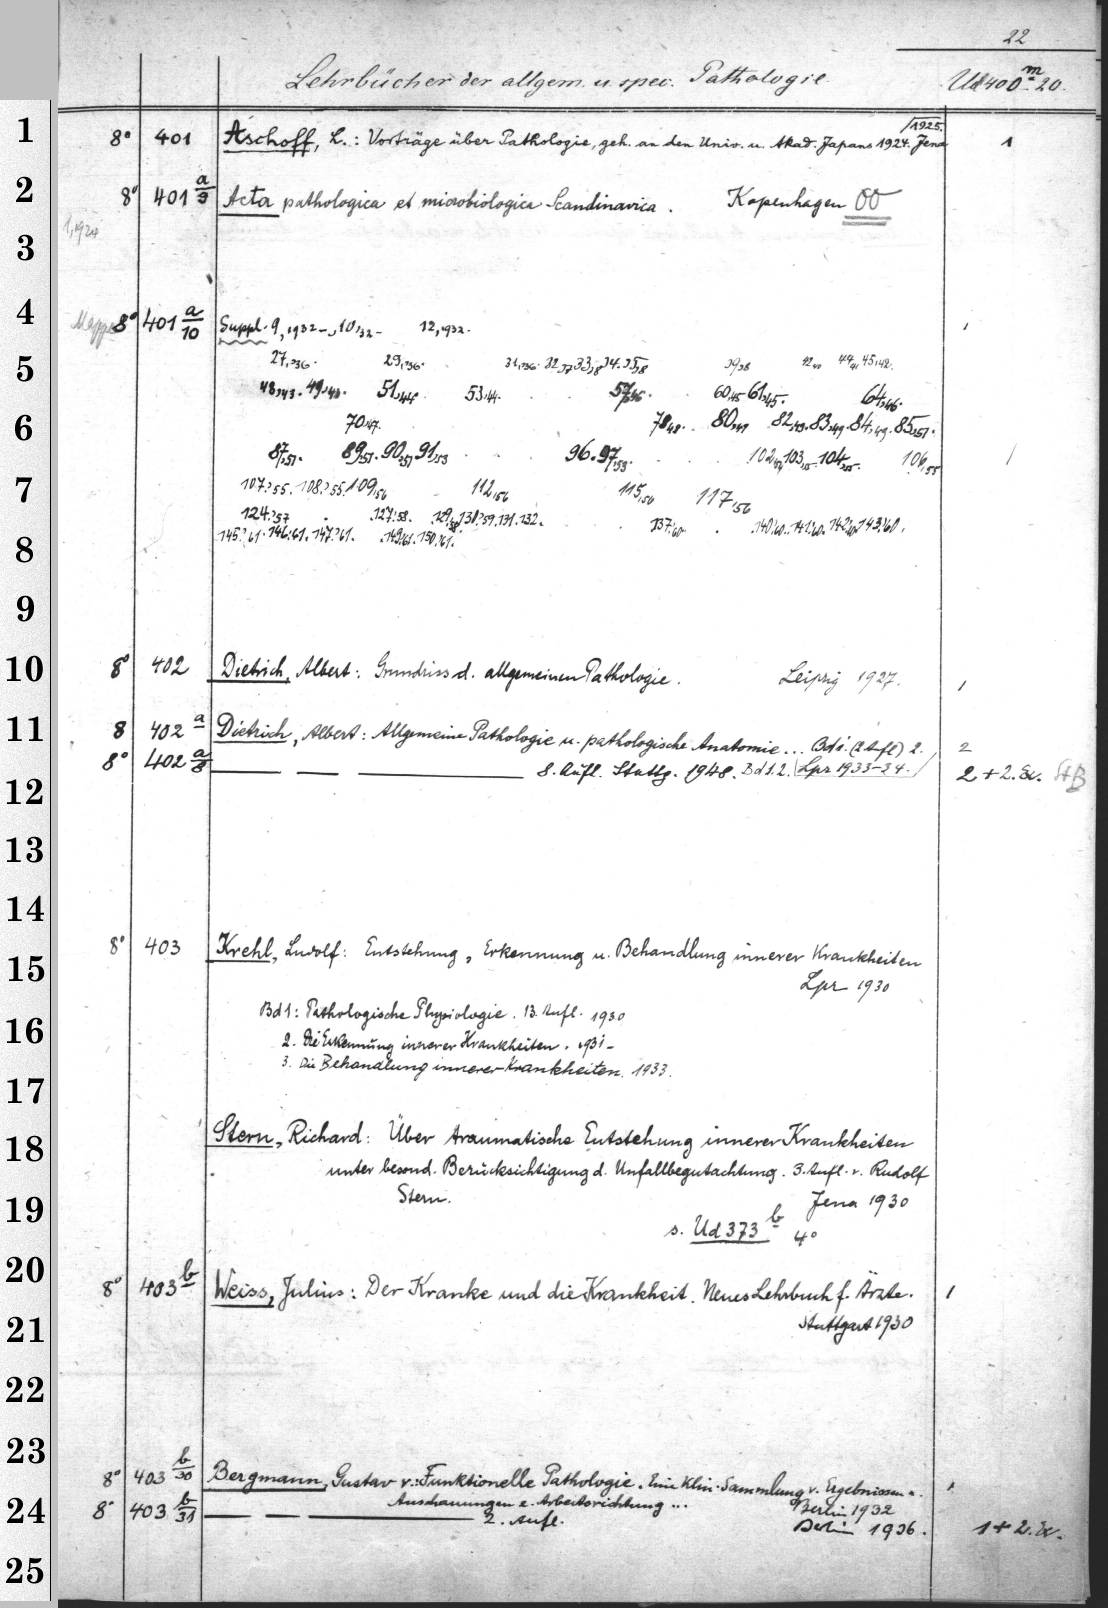 22
Lehrbücher der allgem. u. spec. Pathologie. Ud 400 m 20.
1925.
1 8° 401 Aschoff, L.: Vorträge über Pathologie, geh. an den Univ. u. Akad. Japans 1924. Jena 1
2 8° 401 a/9 Acta pathologica et microbiologica Scandinavica. Kopenhagen OO
1,1924
3
4 Mappe 8° 401 a/10 Suppl. 9,1932-, 10,32- 12,1932.
5 27,36. 29,36. 31,36. 32,37 33,38 34. 35,38 39,38 44,41 45,42.
48,43. 49,43. 51,44. 53,44. 57,45. 60,45 61,45. 64,46.
6 70,47. 78,48. 80,49 82,49. 83,49. 84,49. 85,51.
87,51. 89,51. 90,51 91,53 96. 97,53. 102, 103, 104, 106,55
7 107:55. 108:55. 109,56 112,56 115,56 117,56
124:57 127:58. 129:58 130:59. 131. 132. 137:60 140:60. 141:60. 142:60. 143:60.
8 145:61. 146:61. 147:61. 149:61. 150:61.
9
10 8° 402 Dietrich, Albert: Grundriss d. allgemeinen Pathologie. Leipzig 1927. 1
11 8 402 a Dietrich, Albert: Allgemeine Pathologie u. pathologische Anatomie... Bd 1. (2 Aufl) 2. 2
8° 402 a/8 — — — 8. Aufl. Stuttg. 1948. Bd 1.2. Lpr 1933-34. 2 + 2. Ex.
12
13
14
15 8° 403 Krehl, Ludolf: Entstehung, Erkennung u. Behandlung innerer Krankheiten
Lpr 1930
16 Bd 1: Pathologische Physiologie. 13. Aufl. 1930
2. Die Erkennung innerer Krankheiten. 1931-
3. Die Behandlung innerer Krankheiten. 1933.
17
18 Stern, Richard: Über traumatische Entstehung innerer Krankheiten
unter besond. Berücksichtigung d. Unfallbegutachtung. 3. Aufl. v. Rudolf
19 Stern. Jena 1930
s. Ud 373 b 4°
20 8° 403 b Weiss, Julius: Der Kranke und die Krankheit. Neues Lehrbuch f. Ärzte. 1
21 Stuttgart 1930
22
23
8° 403 b/30 Bergmann, Gustav v.: Funktionelle Pathologie. Eine Klin. Sammlung v. Ergebnissen u. 1
Anschauungen e. Arbeitsrichtung ... Berlin 1932
24 8° 403 b/31 — — — 2. Aufl. Berlin 1936. 1 + 2. Ex.
25